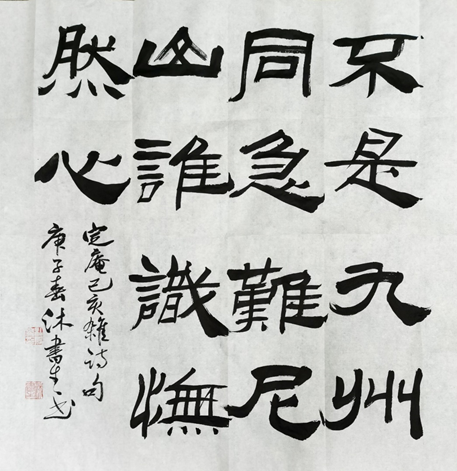 不是九州
同急難尼
山誰識憮
然心
定庵己亥雜詩句
庚子春沐書